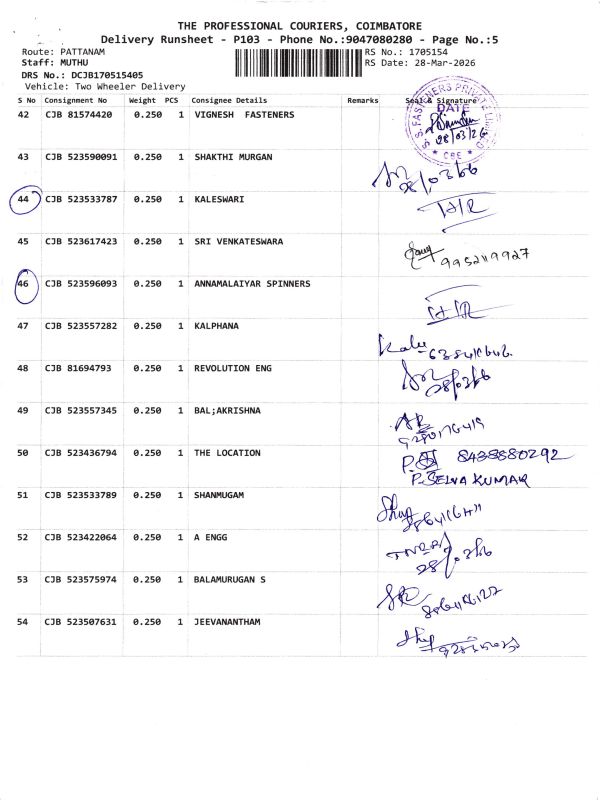 THE PROFESSIONAL COURIERS, COIMBATORE
Delivery Runsheet - P103 - Phone No.:9047080280 - Page No.:5
Route: PATTANAM
Staff: MUTHU
DRS No.: DCJB170515405
Vehicle: Two Wheeler Delivery
RS No.: 1705154
RS Date: 28-Mar-2026
S No Consignment No Weight PCS Consignee Details Remarks Seal & Signature
42 CJB 81574420 0.250 1 VIGNESH FASTENERS
S. S. FASTENERS PRIVATE LIMITED
DATE
28/03/26
* CBE *
43 CJB 523590091 0.250 1 SHAKTHI MURGAN
44 CJB 523533787 0.250 1 KALESWARI
45 CJB 523617423 0.250 1 SRI VENKATESWARA
46 CJB 523596093 0.250 1 ANNAMALAIYAR SPINNERS
47 CJB 523557282 0.250 1 KALPHANA
48 CJB 81694793 0.250 1 REVOLUTION ENG
49 CJB 523557345 0.250 1 BAL;AKRISHNA
50 CJB 523436794 0.250 1 THE LOCATION 8438880292
P. SELVA KUMAR
51 CJB 523533789 0.250 1 SHANMUGAM
52 CJB 523422064 0.250 1 A ENGG
53 CJB 523575974 0.250 1 BALAMURUGAN S
54 CJB 523507631 0.250 1 JEEVANANTHAM